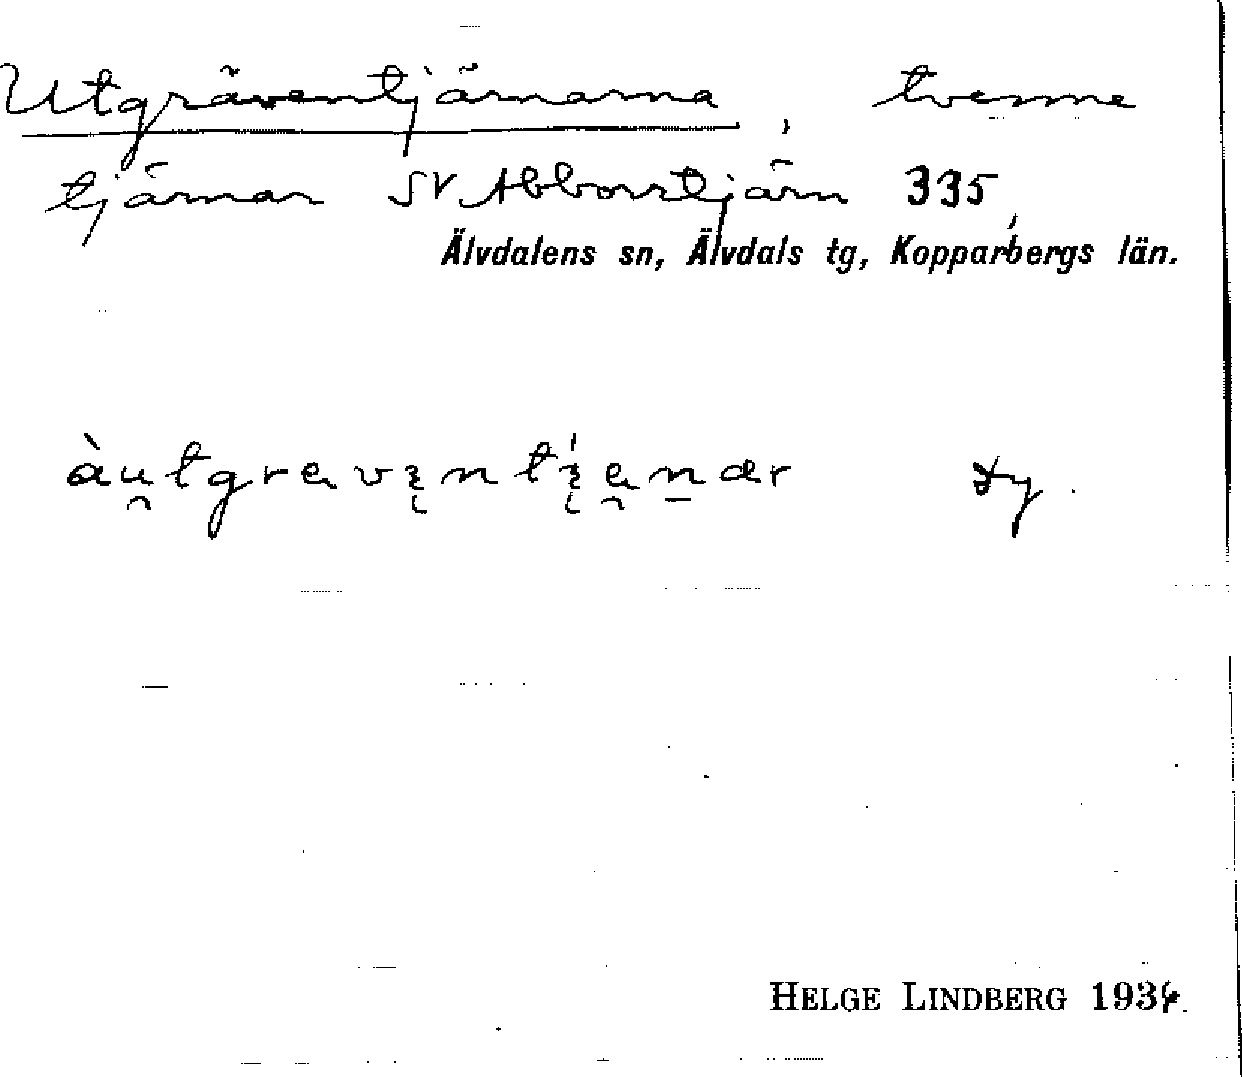 Utgräventjärnarna, tvenne
tjärnar SV Abborrtjärn 335,
Älvdalens sn, Älvdals tg, Kopparbergs län.
HELGE LINDBERG 193